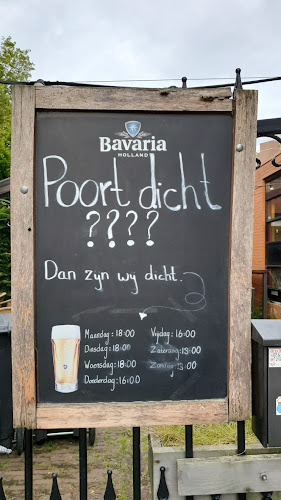 Bavaria
HOLLAND
Poort dicht
????
Dan zyn wy dicht.
Maandag : 18:00
Dinsdag : 18:00
Woensdag : 18:00
Donderdag : 16:00
Vrijdag : 16:00
Zaterdag : 13:00
Zondag : 13:00